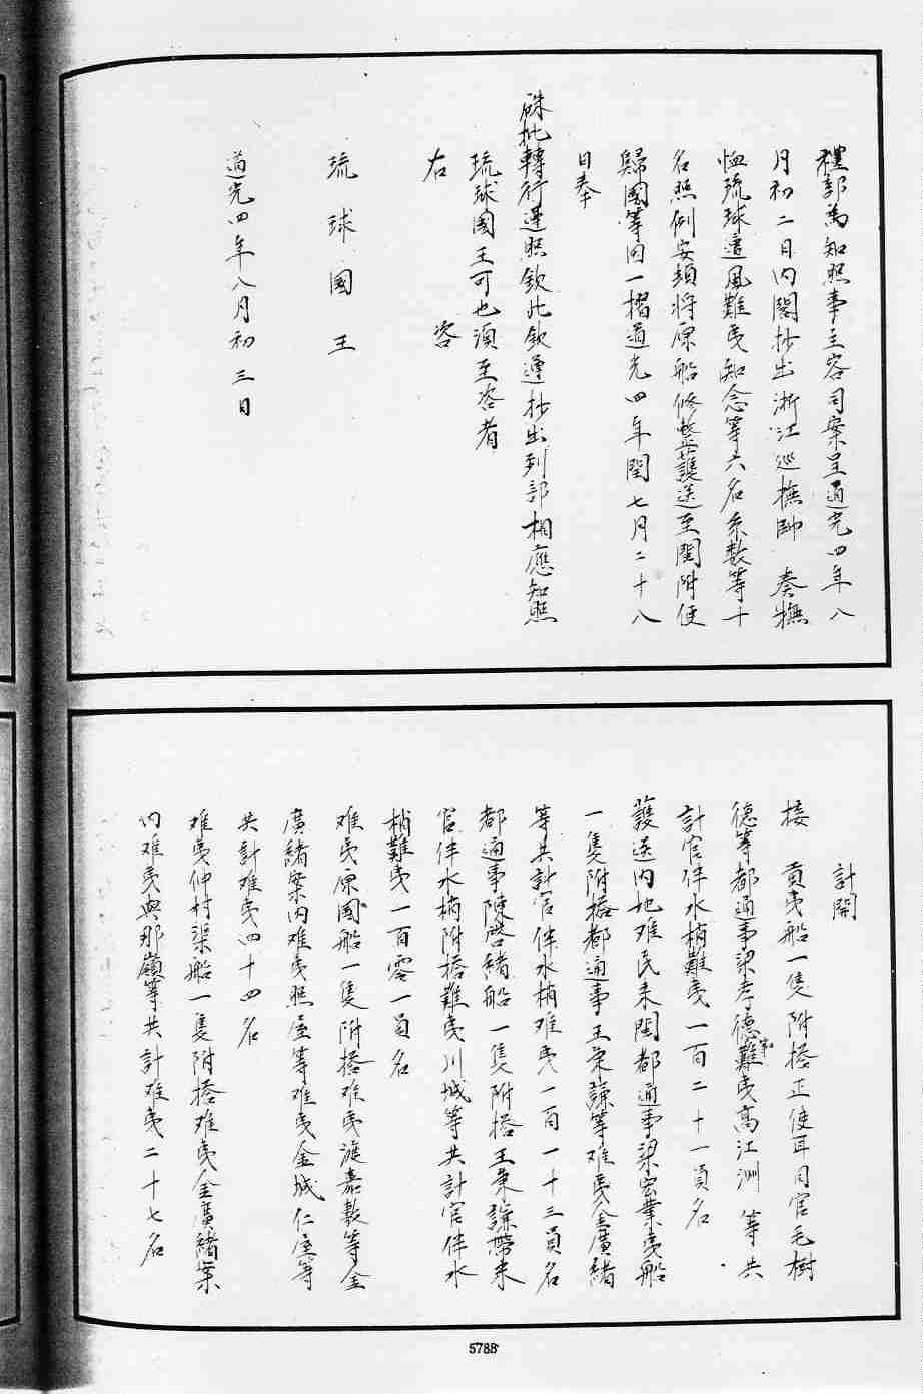 禮部為知照事主客司案呈道光四年八
月初二日內閣抄出浙江巡撫帥 奏撫
恤琉球遭風難夷知念等六名系数等十
名照例安頓將原船修整護送至閩附使
歸國等因一摺道光四年閏七月二十八
日奉
硃批轉行遵照欽此欽遵抄出到部相應知照
琉球國王可也須至咨者
右 咨
琉球國王
道光四年八月初三日
計開
接 貢夷船一隻附搭正使耳目官毛樹
德等都通事梁孝德難夷高江洲 等共
計官伴水梢難夷一百二十一員名
護送內地难民来閩都通事梁宏業夷船
一隻附搭都通事王秉謙等难夷金廣緒
等共計官伴水梢难夷一百一十三員名
都通事陳啓緒船一隻附搭王秉謙帶来
官伴水梢附搭難夷川城等共計官伴水
梢難夷一百零一員名
难夷原国船一隻附搭难夷渡嘉敷等金
廣緒案內难夷照屋等难夷金城仁屋等
共計难夷四十四名
难夷仲村渠船一隻附搭难夷金廣緒案
內难夷與那嶺等共計难夷二十七名
5788